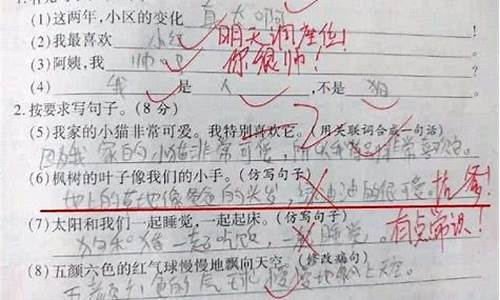 (1)这两年,小区的变化 真大啊
(2)我最喜欢 小红 明天调座位!
(3)阿姨,我 帅吧 你很帅!
(4) 我 是 人 ,不是 狗
2.按要求写句子。(8 分)
(5)我家的小猫非常可爱。我特别喜欢它。(用关联词合成一句话)
因为我家的小猫非常可爱,所以我特别非常喜欢它。
(6)枫树的叶子像我们的小手。(仿写句子)
地上的草地像爸爸的头发,绿油油的很可爱。找爹!
(7)太阳和我们一起睡觉,一起起床。(仿写句子)
狗和猪一起吃饭,一起睡觉。 有点常识!
(8)五颜六色的红气球慢慢地飘向天空。(修改病句)
五颜六色的气球慢慢地飘上天空。